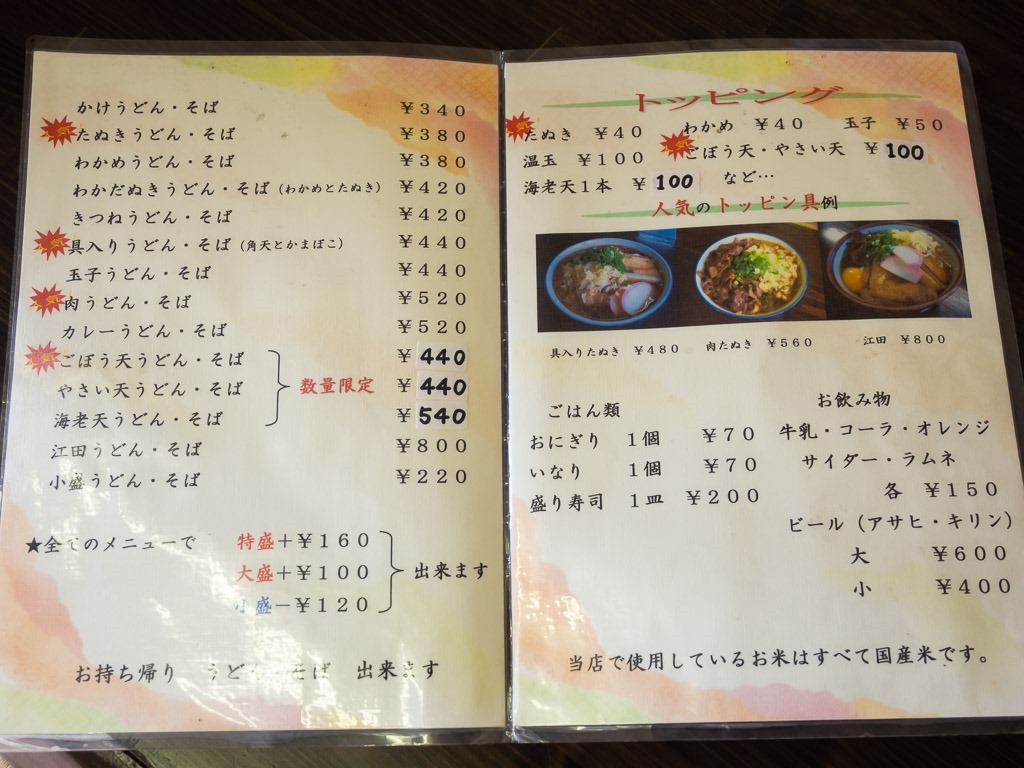 かけうどん・そば ￥３４０
たぬきうどん・そば ￥３８０
わかめうどん・そば ￥３８０
わかだぬきうどん・そば（わかめとたぬき） ￥４２０
きつねうどん・そば ￥４２０
具入りうどん・そば（角天とかまぼこ） ￥４４０
玉子うどん・そば ￥４４０
肉うどん・そば ￥５２０
カレーうどん・そば ￥５２０
ごぼう天うどん・そば ￥440
やさい天うどん・そば 数量限定 ￥440
海老天うどん・そば ￥540
江田うどん・そば ￥８００
小盛うどん・そば ￥２２０
★全てのメニューで 特盛＋￥１６０
大盛＋￥１００ 出来ます
小盛－￥１２０
お持ち帰り うどん・そば 出来ます
トッピング
たぬき ￥４０ わかめ ￥４０ 玉子 ￥５０
温玉 ￥１００ ごぼう天・やさい天 ￥100
海老天１本 ￥100 など…
人気のトッピン具例
具入りたぬき ￥４８０ 肉たぬき ￥５６０ 江田 ￥８００
ごはん類
おにぎり １個 ￥７０
いなり １個 ￥７０
盛り寿司 １皿 ￥２００
お飲み物
牛乳・コーラ・オレンジ
サイダー・ラムネ
各 ￥１５０
ビール（アサヒ・キリン）
大 ￥６００
小 ￥４００
当店で使用しているお米はすべて国産米です。